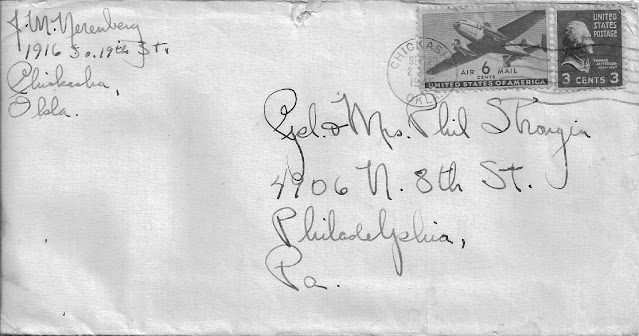 J. M. Nerenberg
1916 So. 19th St.
Chickasha,
Okla.
CHICKASHA
OKLA
AIR 6 MAIL
CENTS
UNITED STATES OF AMERICA
UNITED
STATES
POSTAGE
THOMAS
JEFFERSON
3 CENTS 3
Cpl. & Mrs. Phil Strongin
4906 N. 8th St.
Philadelphia,
Pa.